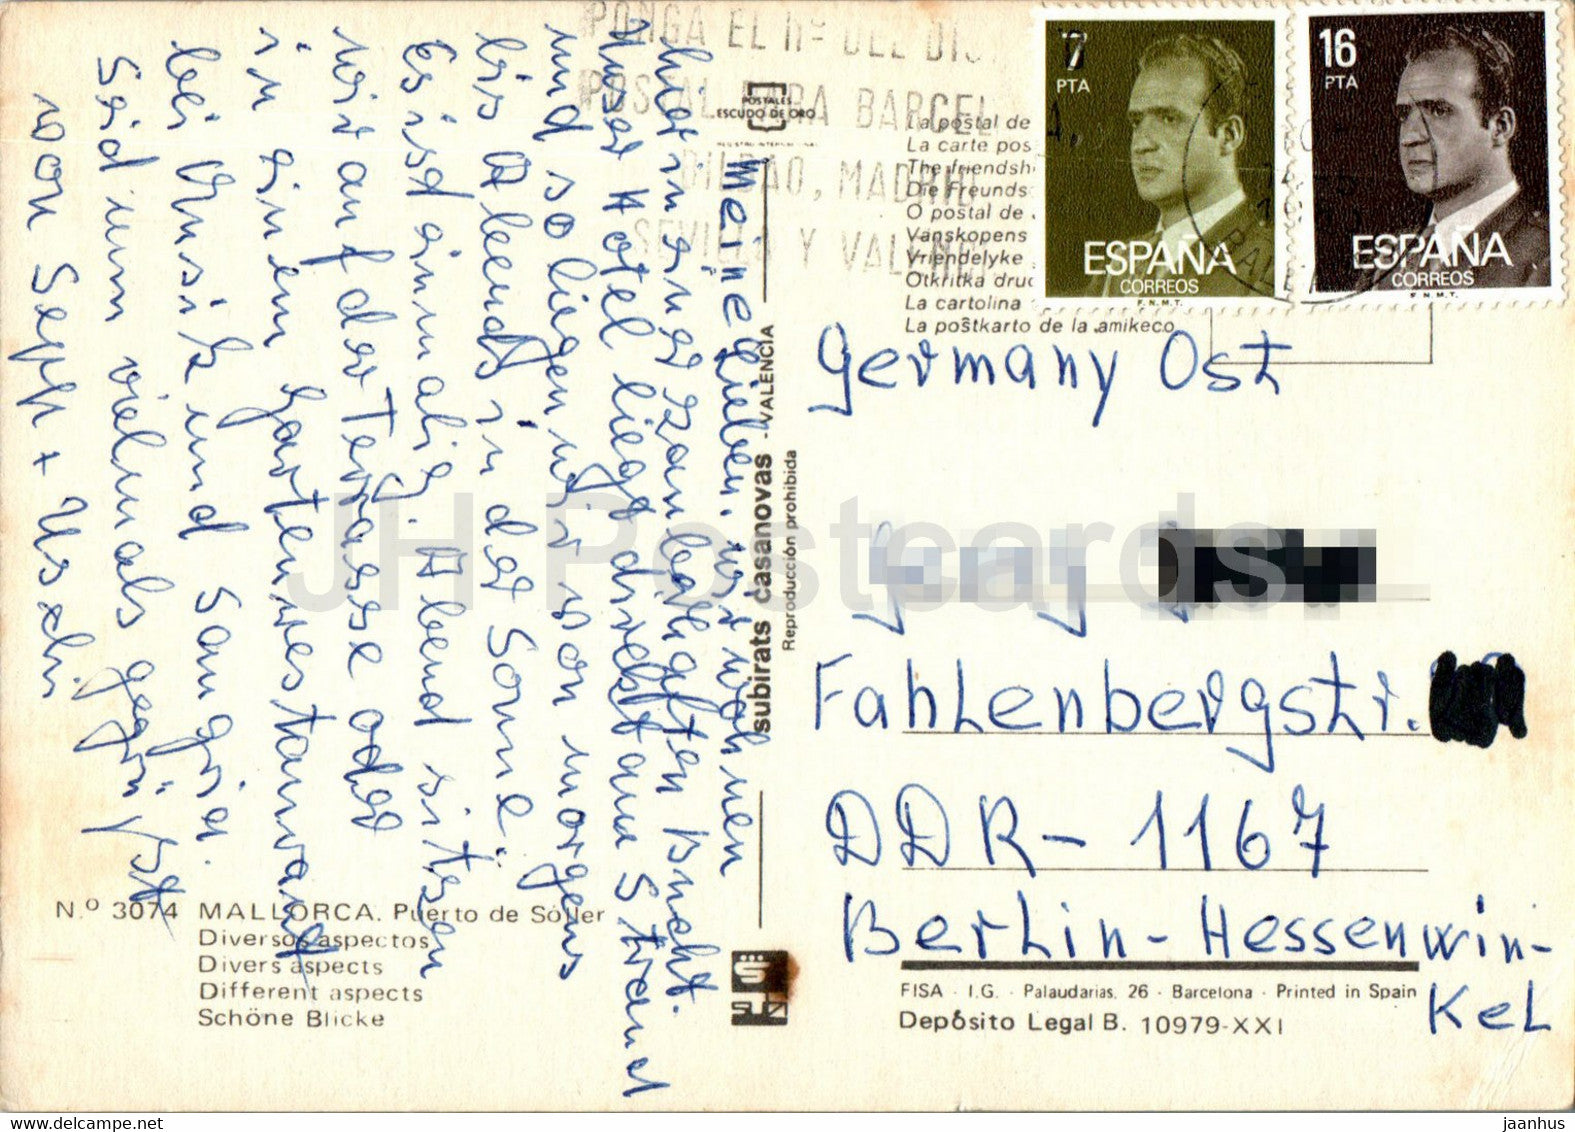 Meine Lieben, wir wohnen
hier in einer zauberhaften Bucht.
Unser Hotel liegt direkt am Strand
und so liegen wir von morgens
bis Abends in der Sonne.
Es ist einmalig. Abend sitzen
wir auf der Terasse oder
in einem Gartenrestaurant
bei Musik und Sangria.
Seid nun vielmals gegrüßt
von Sepp + Uschi
PONGA EL nº DEL DIS
POSTAL PARA BARCEL
BILBAO, MADRID
SEVILLA Y VALEN
POSTALES
ESCUDO DE ORO
REGISTRO INTERNACIONAL
La postal de
La carte pos
The friendsh
Die Freunds
O postal de
Vanskopens
Vriendelyke
Otkritka druc
La cartolina
La poŝtkarto de la amikeco
7
PTA
ESPAÑA
CORREOS
F.N.M.T.
16
PTA
ESPAÑA
CORREOS
F.N.M.T.
Germany Ost
Fahlenbergstr.
DDR-1167
Berlin-Hessenwin-
kel
subirats casanovas - VALENCIA
Reproducción prohibida
N.º 3074 MALLORCA. Puerto de Sóller
Diversos aspectos
Divers aspects
Different aspects
Schöne Blicke
FISA - I.G. - Palaudarias, 26 - Barcelona - Printed in Spain
Depósito Legal B. 10979-XXI
JH Postcards
https://www.delcampe.net
jaanhus